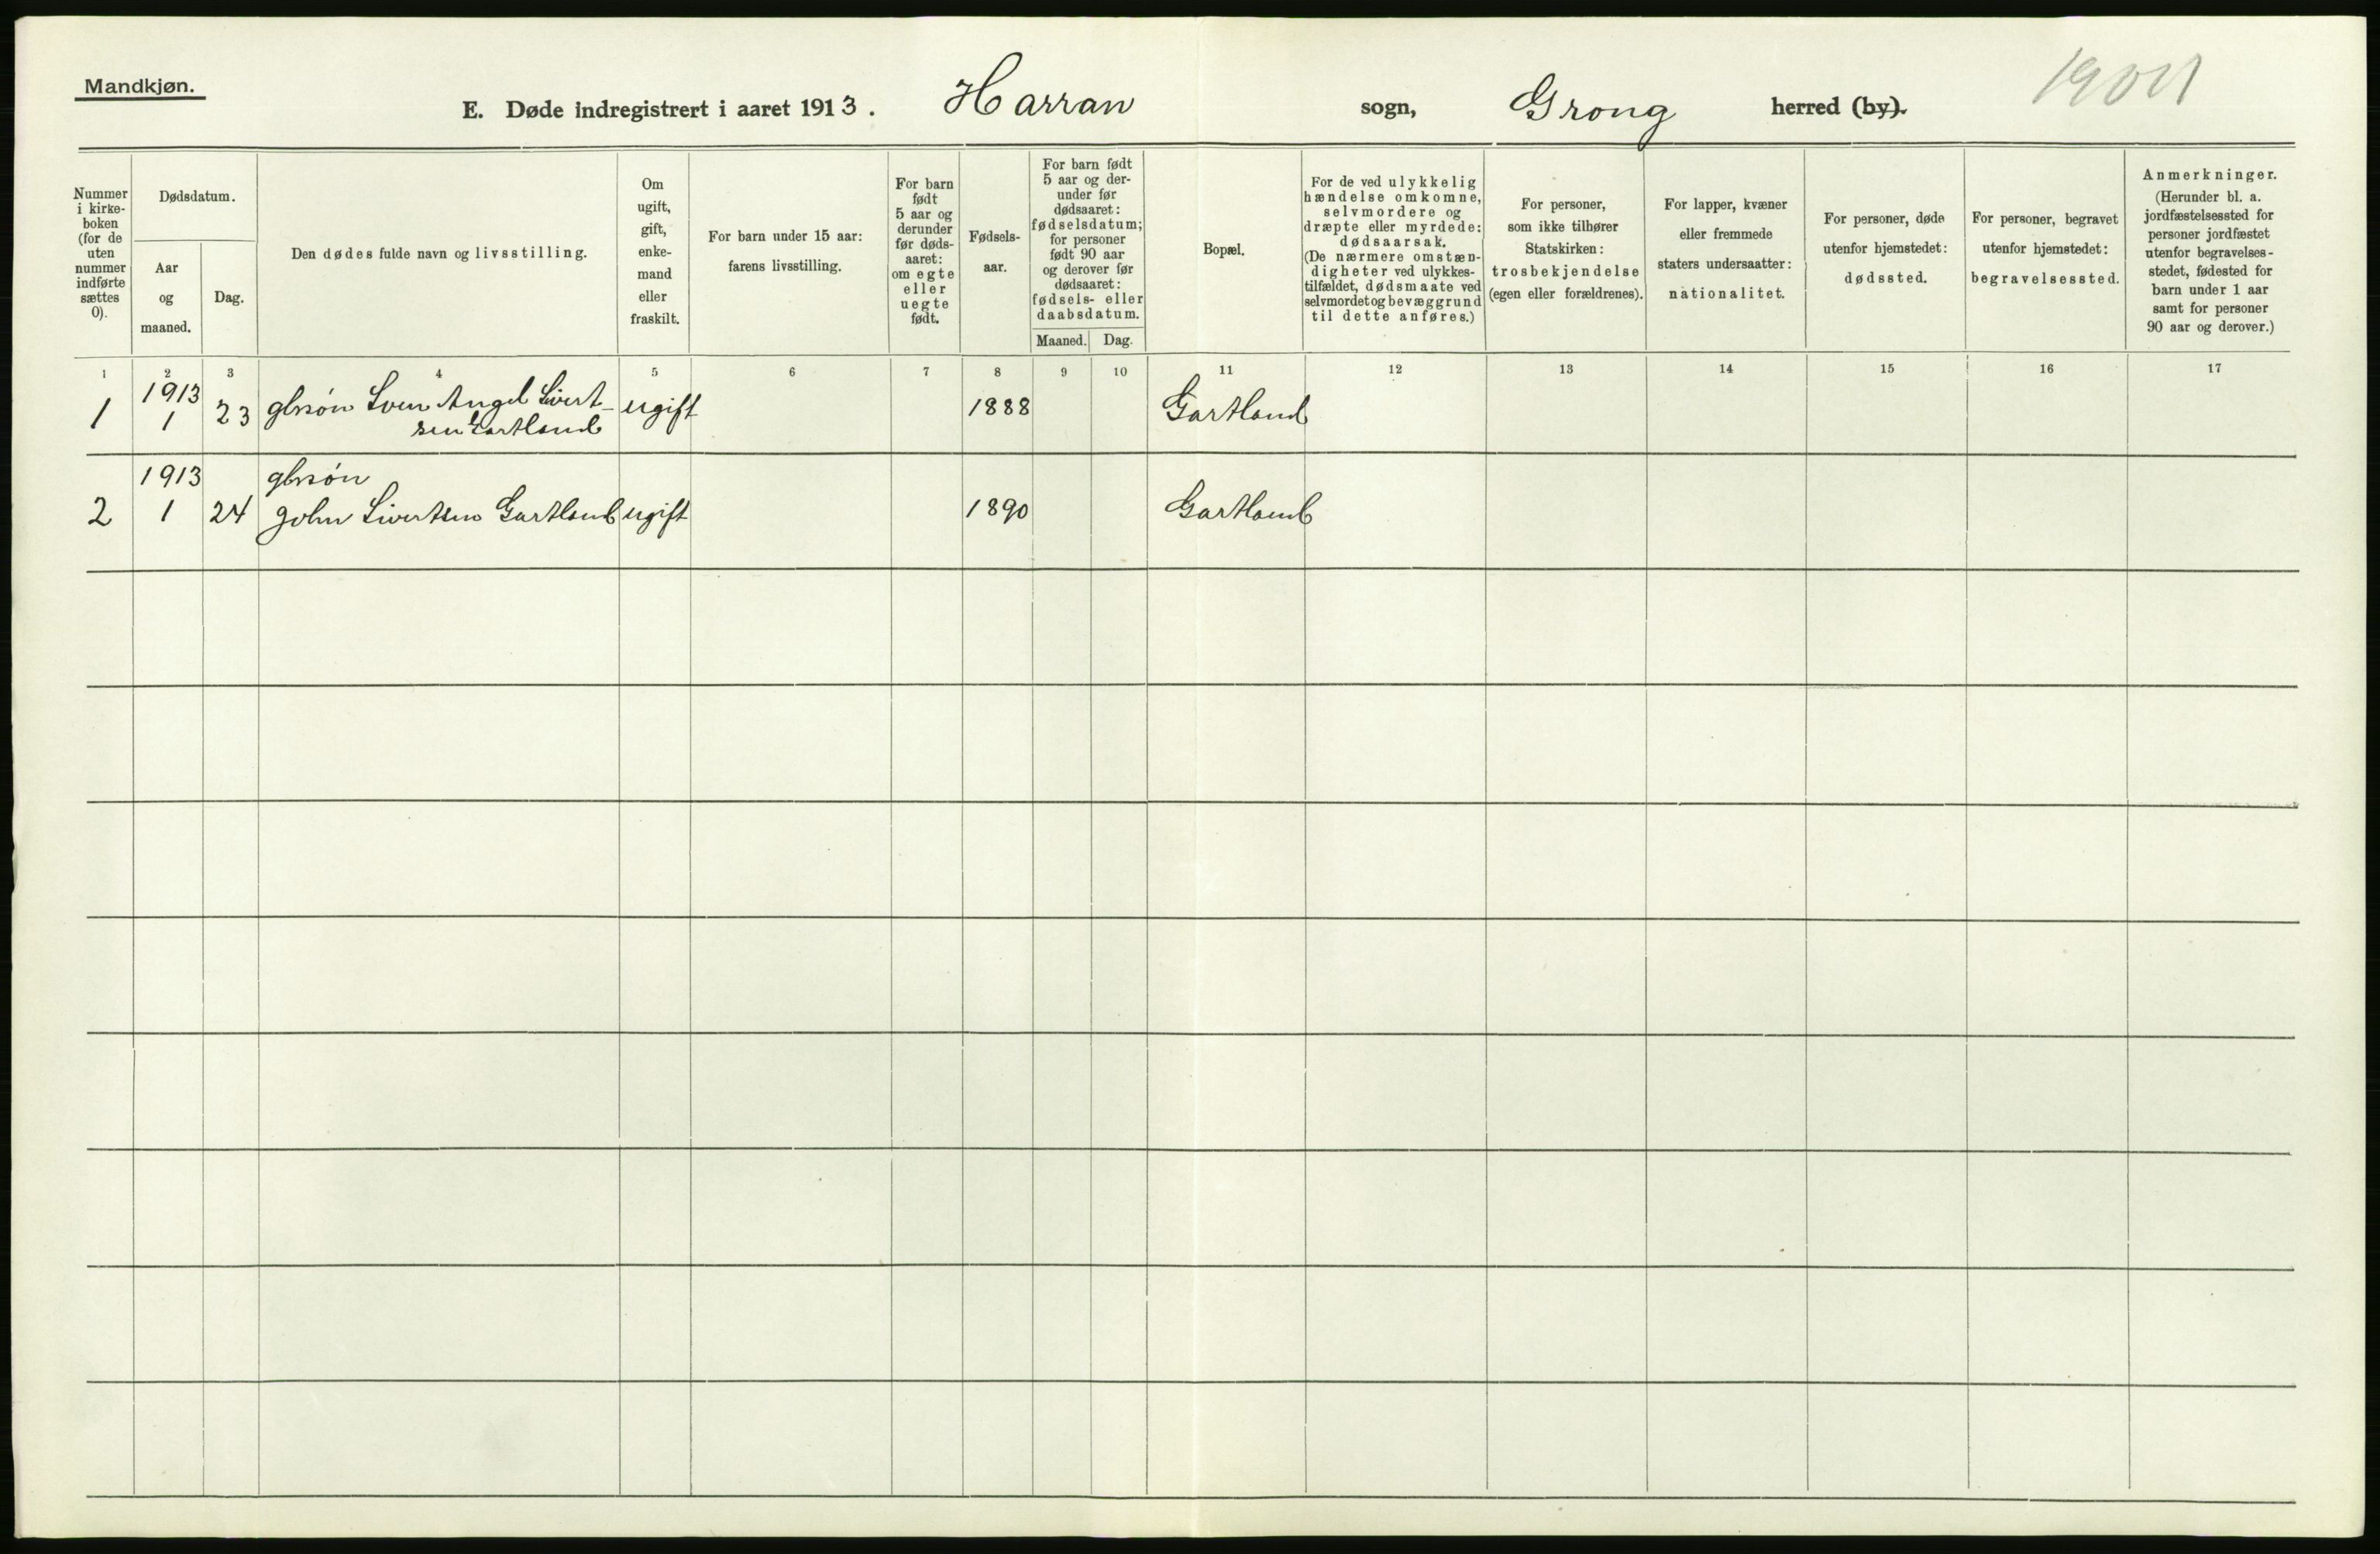 Mandkjøn.
E. Døde indregistrert i aaret 1913. Harran sogn, Grong herred (by).
Nummer
i kirke-
boken
(for de
uten
nummer
indførte
sættes
0).
Dødsdatum.
Aar
og
maaned.
Dag.
Den dødes fulde navn og livsstilling.
Om
ugift,
gift,
enke-
mand
eller
fraskilt.
For barn under 15 aar:
farens livsstilling.
For barn
født
5 aar og
derunder
før døds-
aaret:
om egte
eller
uegte
født.
Fødsels-
aar.
For barn født
5 aar og der-
under før
dødsaaret:
fødselsdatum;
for personer
født 90 aar
og derover før
dødsaaret:
fødsels- eller
daabsdatum.
Maaned. Dag.
Bopæl.
For de ved ulykkelig
hændelse omkomne,
selvmordere og
dræpte eller myrdede:
dødsaarsak.
(De nærmere omstæn-
digheter ved ulykkes-
tilfældet, dødsmaate ved
selvmordet og bevæggrund
til dette anføres.)
For personer,
som ikke tilhører
Statskirken:
trosbekjendelse
(egen eller forældrenes).
For lapper, kvæner
eller fremmede
staters undersaatter:
nationalitet.
For personer, døde
utenfor hjemstedet:
dødssted.
For personer, begravet
utenfor hjemstedet:
begravelsessted.
Anmerkninger.
(Herunder bl. a.
jordfæstelsessted for
personer jordfæstet
utenfor begravelses-
stedet, fødested for
barn under 1 aar
samt for personer
90 aar og derover.)
1 2 3 4 5 6 7 8 9 10 11 12 13 14 15 16 17
1913
1 1 23 gbrsøn Sven Angel Sivert- ugift 1888 Gartland
sen Gartland
1913 gbrsøn
2 1 24 John Sivertsen Gartland ugift 1890 Gartland